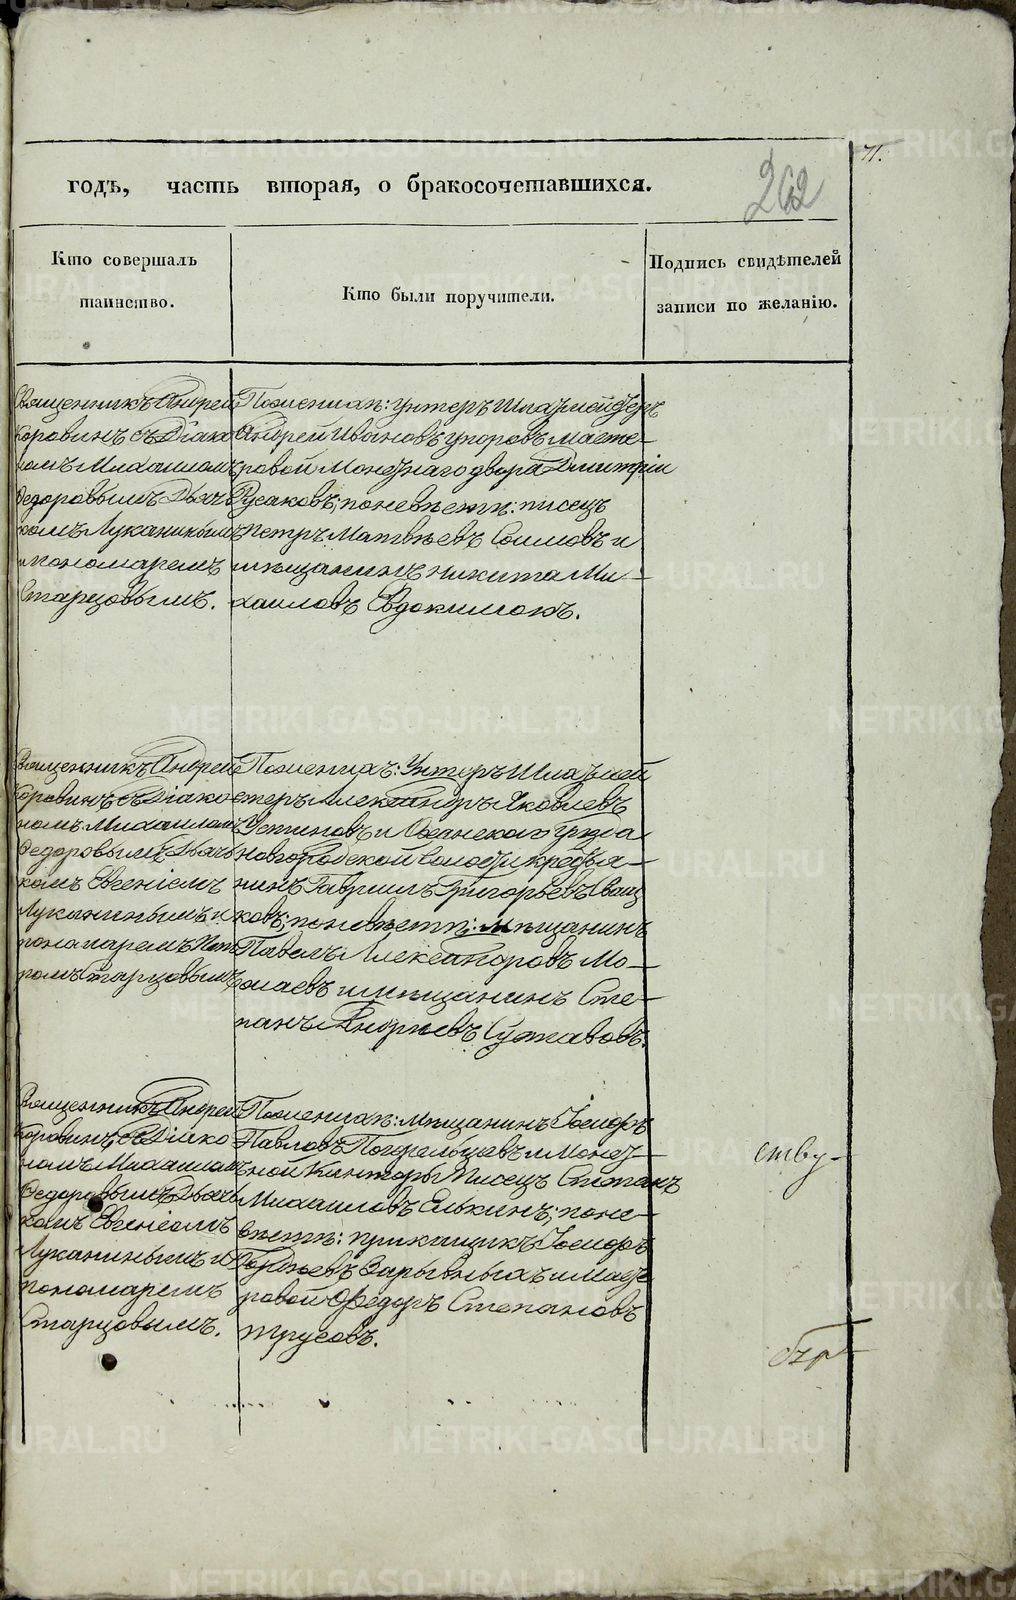 71.
годѣ, часть вторая, о бракосочетавшихся.
262
Кто совершалъ
таинство.
Кто были поручители.
Подпись свидѣтелей
записи по желанію.
Священникъ Андрей
Коровинъ съ Діако
номъ Михаиломъ
Федоровымъ Дьяч
комъ Луканинымъ
и пономаремъ
Старцовымъ.
По женихѣ: унтеръ Шихтмейстеръ
Андрей Ивановъ Упоровъ масте-
ровой Монетнаго двора Дмитрій
Русаковъ; по невѣстѣ: писецъ
Петръ Матвѣевъ Сошловъ и
мѣщанинъ Никита Ми-
хаиловъ Евдокимовъ.
Священникъ Андрей
Коровинъ съ Діако
номъ Михаиломъ
Федоровымъ Дьяч
комъ Евгеніемъ
Луканинымъ и
пономаремъ Пет
ромъ Старцовымъ
По женихѣ: Унтеръ Шихтмей
стеръ Александръ Яковлевъ
Устиновъ и Осанскаго уѣзда
крестья-
нинъ Гавріилъ Григорьевъ
ковъ; по невѣстѣ: мѣщанинъ
Павелъ Александровъ Мо-
лаевъ и мѣщанинъ Сте-
панъ Андреевъ Суставовъ.
Священникъ Андрей
Коровинъ съ Діако
номъ Михаиломъ
Федоровымъ Дьяч
комъ Евгеніемъ
Луканинымъ и
пономаремъ
Старцовымъ.
По женихѣ: мѣщанинъ Ѳсидоръ
Павловъ Погорѣльцевъ и Монет-
ной Канторы Писецъ Степанъ
Михаиловъ Елькинъ; по не-
вѣстѣ: прикащикъ
Гордѣевъ Зарывныхъ и масте
ровой Федоръ Степановъ
Трусовъ.
ству-